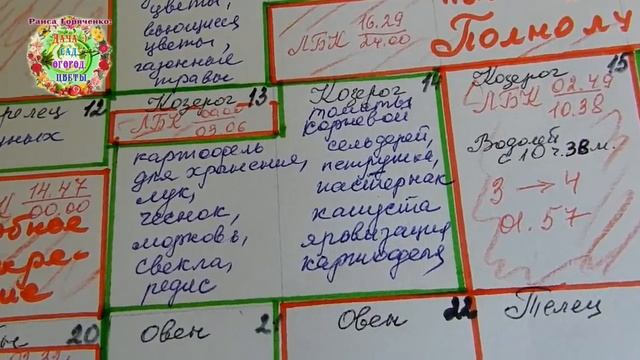 Раиса Горяченко
ДАЧА
САД
ОГОРОД
ЦВЕТЫ
цветы,
вьющиеся
цветы,
газонные
травы
ЛБК 16.29
24.00
Полнолу
12
13
Козерог
ЛБК 00.00
03.06
картофель
для хранения,
лук,
чеснок,
морковь,
свекла,
редис
14
Козерог
томаты
корневой
сельдерей,
петрушка,
пастернак
капуста
яровизация
картофеля
15
Козерог
ЛБК 02.49
10.38
Водолей
с 10 ч. 38 м.
3 → 4
01.57
14.47
00.00
20
Овен
21
Овен
22
Телец